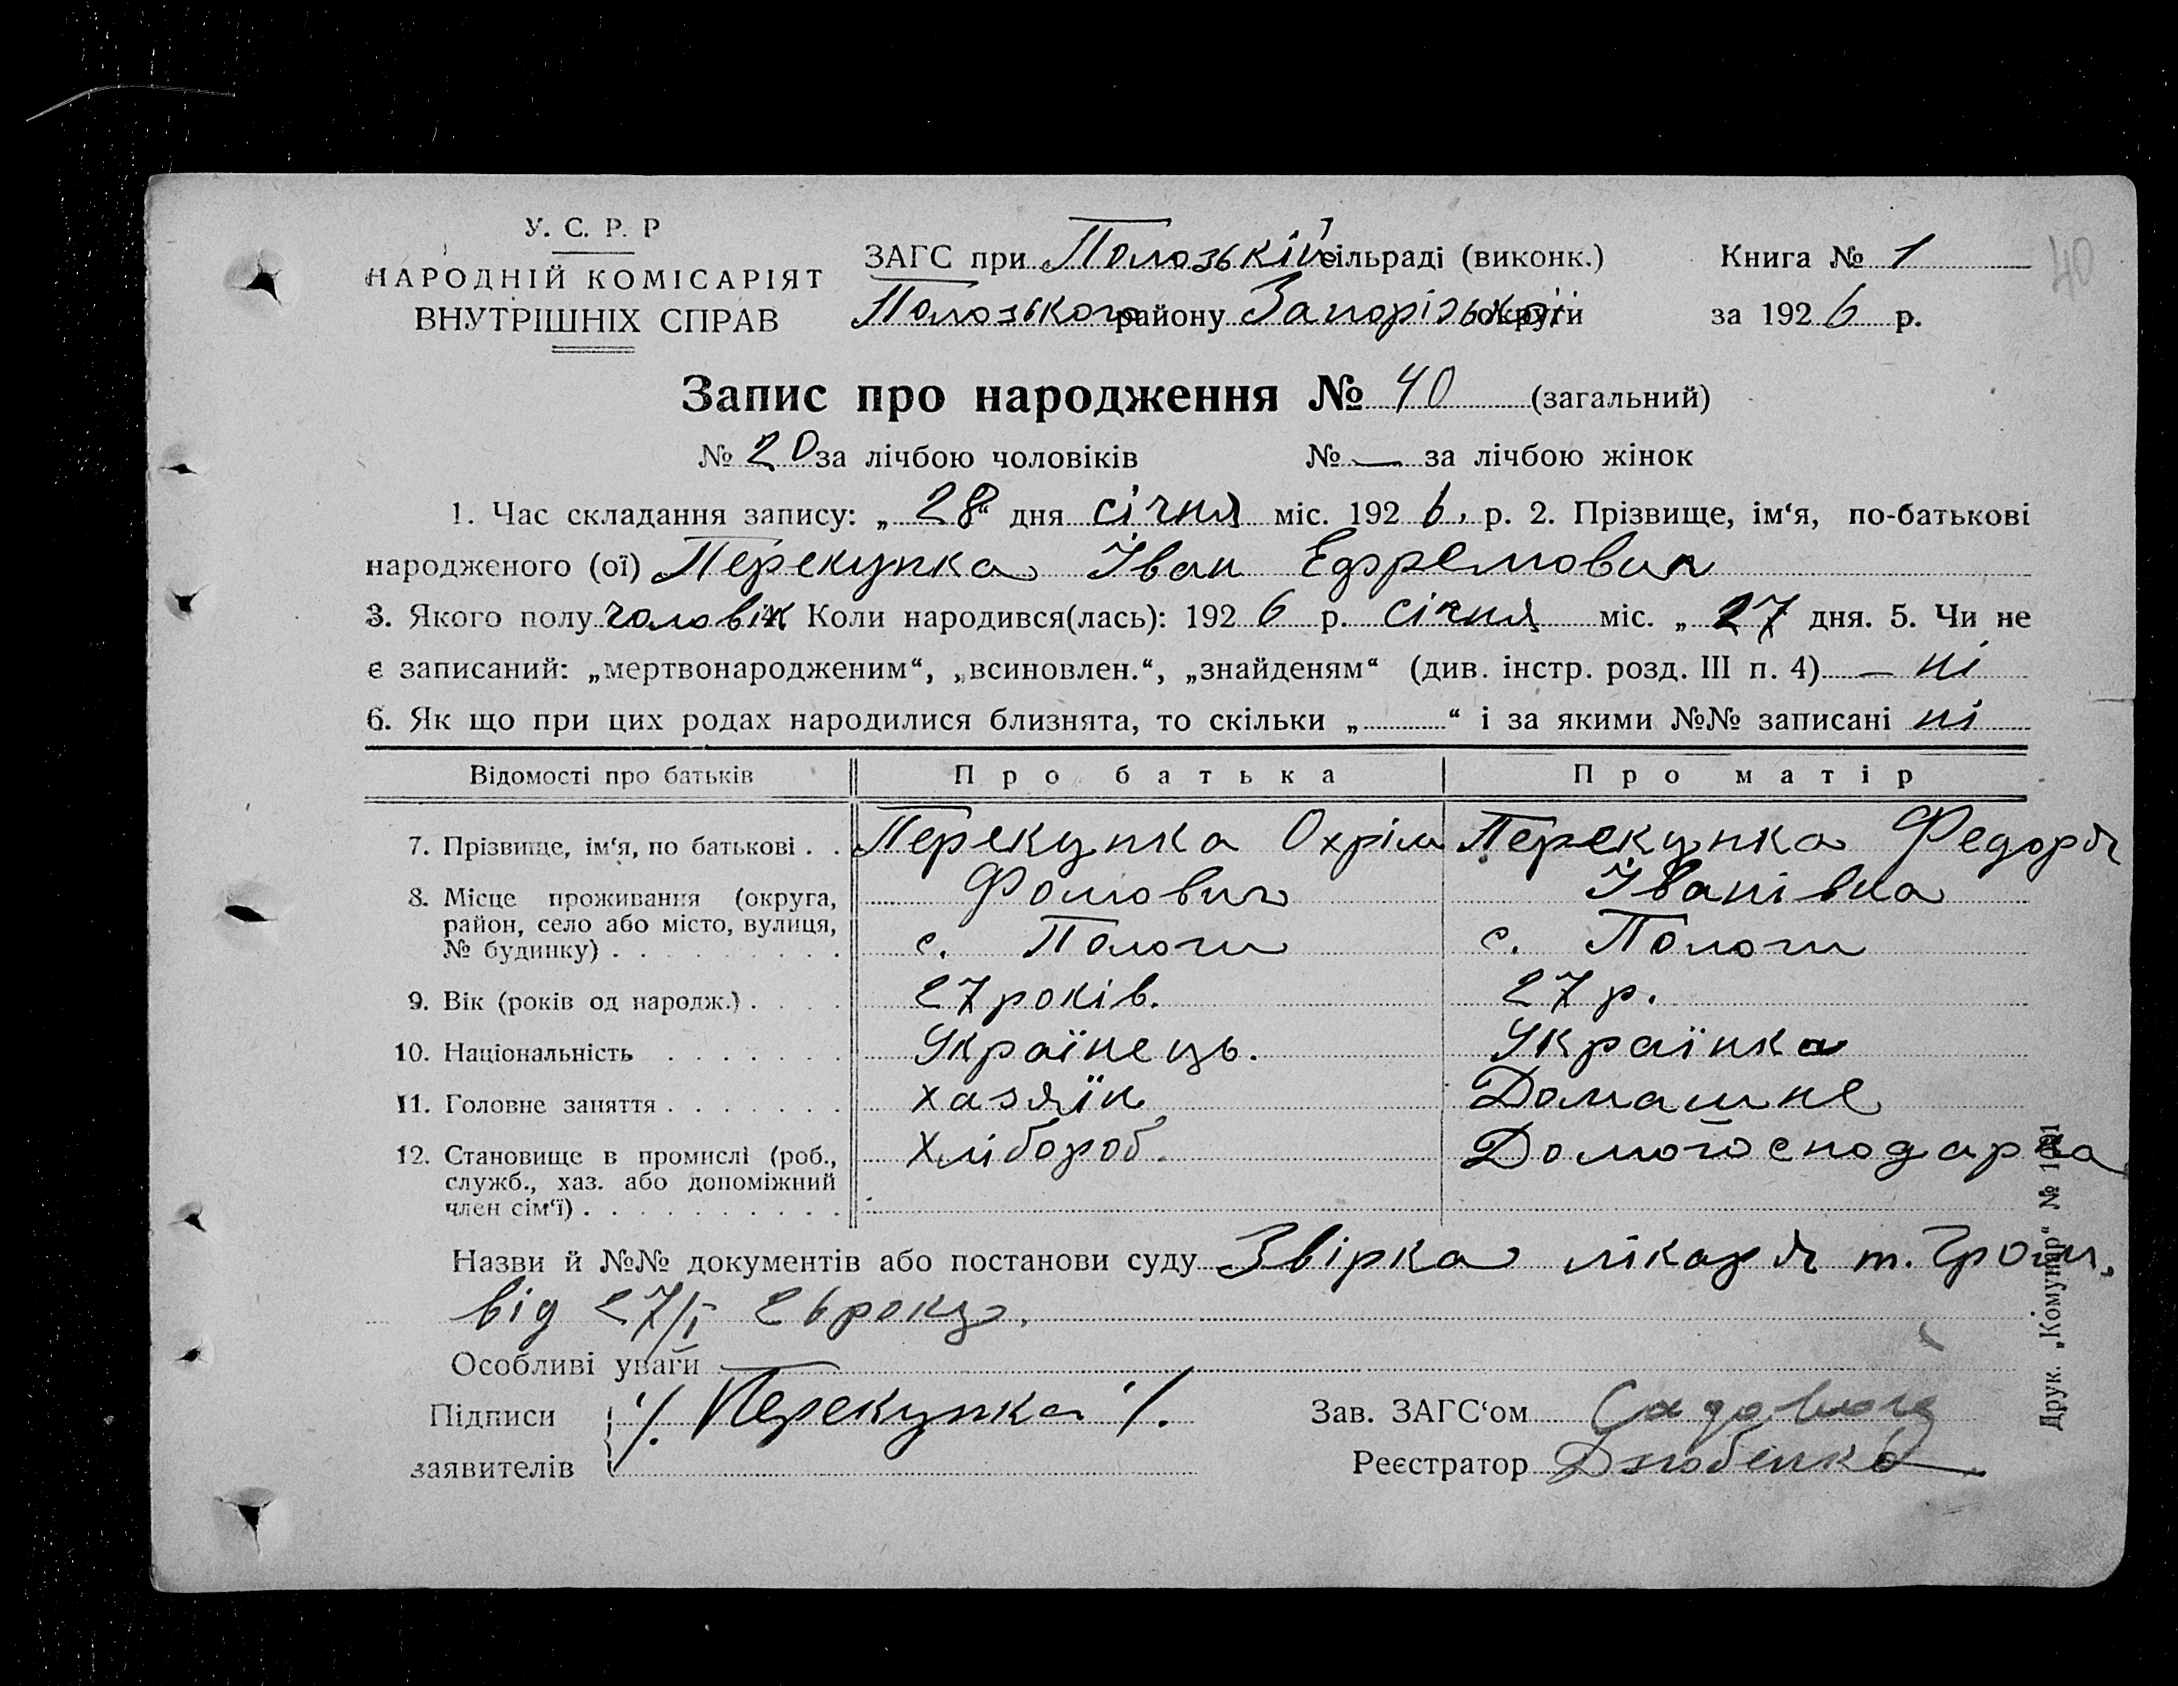 У. С. Р. Р
НАРОДНІЙ КОМІСАРІЯТ
ВНУТРІШНІХ СПРАВ
ЗАГС при Полозькій сільраді (виконк.)
Полозького району Запорізької округи
Книга № 1
за 1926 р.
40
Запис про народження № 40 (загальний)
№ 20 за лічбою чоловіків № — за лічбою жінок
1. Час складання запису: „28“ дня січня міс. 1926. р. 2. Прізвище, ім‘я, по-батькові
народженого (ої) Перекупка Іван Ефремович
3. Якого полу чоловік 4. Коли народився(лась): 1926 р. січня міс. „27 дня. 5. Чи не
є записаний: „мертвонародженим“, „всиновлен.“, „знайденям“ (див. інстр. розд. III п. 4) — ні
6. Як що при цих родах народилися близнята, то скільки „ “ і за якими №№ записані ні
Відомості про батьків Про батька Про матір
7. Прізвище, ім‘я, по батькові . . Перекупка Охрім Перекупка Федоря
Фомович Іванівна
8. Місце проживання (округа,
район, село або місто, вулиця,
№ будинку) . . . . . . . . . с. Пологи с. Пологи
9. Вік (років од народж.) . . . . 27 років. 27 р.
10. Національність . . . . . . . Українець. Українка
11. Головне заняття . . . . . . . хазяїн Домашне
12. Становище в промислі (роб., Хлібороб. Домогосподарка
служб., хаз. або допоміжний
член сім‘ї) . . . . . . . . . .
Назви й №№ документів або постанови суду Звірка лікаря т. Гром.
від 27/I 26 року.
Особливі уваги
Підписи ./. Перекупка ./.
заявителів
Зав. ЗАГС‘ом
Реєстратор Дзюбенко
Друк. „Комунар“ №